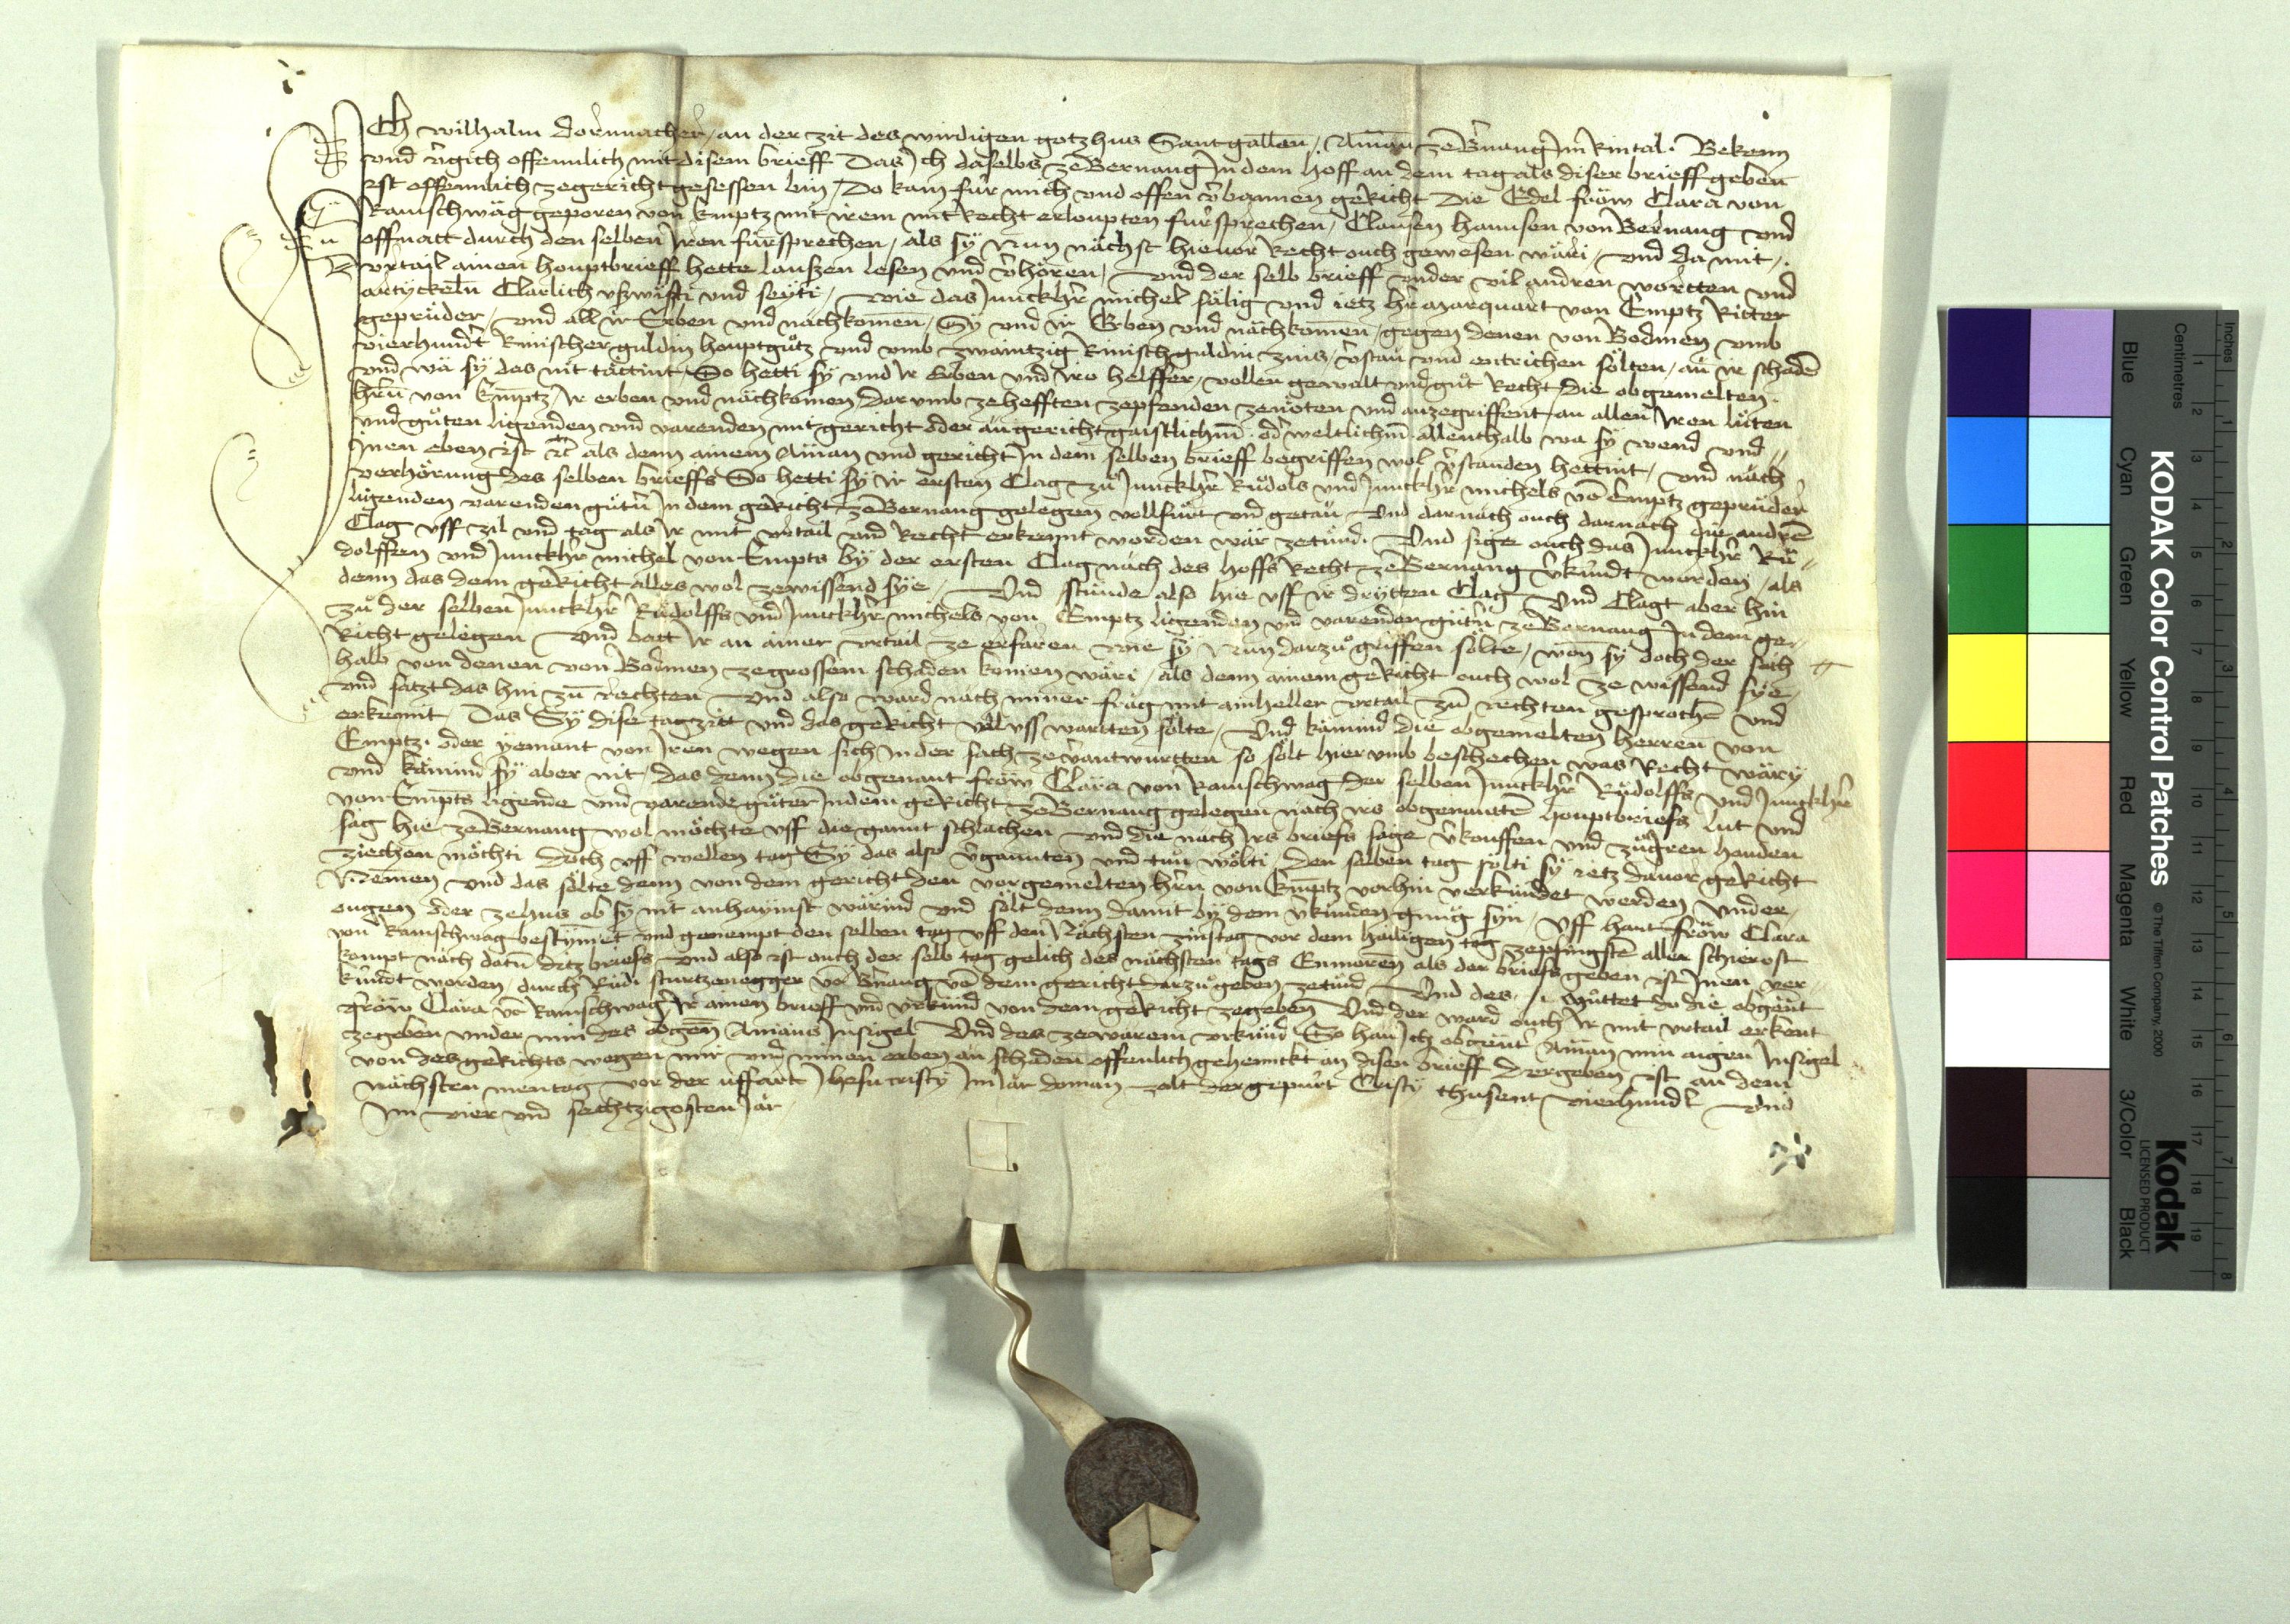 Ich wilhalm dornnacher / an der zit des wirdigen gotzhus Sant gallen / Aman ze Bnang Im Rintal. Bekenn
vnd vgich offennlich mit disem brieff Das Ich daselbs ze Bernang In dem hoff an dem tag als diser brieff geben
ist offennlich ze gericht gesessen bin / Do kam für mich vnd offen vbannen gericht Die Edel fröw Clara von
Ramschwäg geporen von Emptz mit irem mit Recht erloupten fürsprechen / Clausen hannsen von Bernang vnd
offnatt durch den selben Iren fürsprechen / als sy Nun nächst hieuor Recht ouch gewesen wäri / vnd da mit /
vrtail ainen houptbrieff hette laussen lesen vnd vhören / vnd der selb brieff vnder vil andren wortten vnd
artyckeln Clarlich vßwisti vnd seyti / wie das Junckhr michel sälig vnd ietz hr marquart von Emptz Ritter
geprüder / vnd all ir Erben vnd nächkomen / Sy vnd ir Erben vnd nächkomen / gegen denen von Bodmen vmb
vierhundt Rinischer guldin houptgutz vnd vmb zwaintzig Rinisch guldin zins / vstan vnd entrichen sölten / an ir schaden
vnd wä sy das nit tättint / So hetti sy vnd Ir Erben vnd Iro helffer / vollen gewalt vnd gut Recht / Die obgemelten
hrn von Emptz / Ir erben vnd nächkomen / Dar vmb ze hefften ze pfenden ze nöten vnd anzegriffent / an allen Iren lüten
vnd guten ligenden vnd varenden mit gericht oder än gericht gaistlichem / od weltlichem allenthalb wa sy wend vnd
Inen eben ist etc als denn ainem Aman vnd gericht In dem selben brieff begriffen wol vstanden hettint / vnd näch
verhörung des selben brieffs So hetti sy ir ersten Clag zu Junckhr Rudols vnd Junckhr michels vo Emptz geprüder
ligenden varenden gutn In dem gericht ze Bernang gelegen vollfürt vnd getan / vnd darnäch ouch darnäch die andren
Clag vff zil vnd tag als Ir mit vrtail vnd Recht erkennt worden wär ze tund. Vnd sige ouch das Junckhr Ru-
dolffen vnd Junckhr michel von Empts by der ersten Clag näch des hoffs Recht ze Bernang vkündt worden / als
denn das dem gericht alles wol ze wissend sye / Vnd stünde also hie vff ir drytten Clag Vnd Clagt aber hin
zu der selben Junckhr Rudolffs vnd Junckhr michels von Emptz ligenden vnd varenden gutn ze Bernang In dem ge-
richt gelegen Vnd batt Ir an ainer vrtail ze erfaren wie sy Nun darzu griffen sölte / won sy doch der sach
halb von denen von Bodmen ze grossem schaden komen wäri / als denn ainem gericht ouch wol ze wissend sye /
vnd satzt das hin zu rechten Vnd also ward näch miner fräg mit ainheller vrtail zu rechten gesprochen vnd
erkennt / Das Sy dise tagzitt vnd das gericht vol vss wartten sölte / Vnd kämind die obgemelten herren von
Emptz / oder yemant von Iren wegen sich In der sach ze vantwurtten so sölt hier vmb beschechen was Recht wäry
vnd kämind sy aber nit / Das denn die obgenant fröw Clära von Ramschwag / der selben Junckhr Rudolffs vnd Junckhr
von Empts ligende vnd varende güter In dem gericht ze Bernang gelegen nach irs obgenanten houptbriefs lut vnd
sag hie ze Bernang wol möchte vff die gannt schlachen vnd die nach Irs briefs sage vkouffen vnd zu Iren handen
ziechen möchti Doch vff wellen tag Sy das also vgannten vnd tun wölti / Den selben tag sölti sy ietz dauor gericht
Nemen vnd das sölte denn von dem gericht den vorgemelten hrn von Emptz vorhin verkündet werden vnder
ougen oder ze hus ob sy nit anhaymst wärind vnd sölt denn damit by dem vkünden gnug syn / Vff hant fröw Clara
von Ramschwag bestymet vnd genempt den selben tag vff den Nächsten zinstag vor dem hailigen tag ze pfingsten aller schierost
kompt näch datu ditz briefs Vnd also ist ouch der selb tag gelich des nächsten tags Enmoren als der briefs geben ist Inen ver-
kündt worden / durch Rudi sturtzenegger vo Bnang vo dem gericht darzu geben ze tund Vnd des / Muttet do die obgent
fröw Clara vo Ramschwag Ir ainen brieff vnd vrkünd von dem gericht ze geben Vnd der ward ouch Ir mit vrtail erkent
ze geben vnder min des obgen Amans Insigel Vnd des ze warem vrkünd So han Ich obgent Aman min aigen Insigel
von des gerichts wegen mir vnd minen erben än schaden offenlich gehennckt an disen brieff Der geben ist an dem
nächsten mentag vor der uffart Jhesu cristy Im Jär do man zalt der gepurt Cristy thusent vierhundt vnd
Im vier vnd sechtzigosten Jär
KODAK Color Control Patches
© The Tiffen Company, 2000
Kodak
LICENSED PRODUCT
Blue Cyan Green Yellow Red Magenta White 3/Color Black
Inches 1 2 3 4 5 6 7 8
Centimetres 1 2 3 4 5 6 7 8 9 10 11 12 13 14 15 16 17 18 19